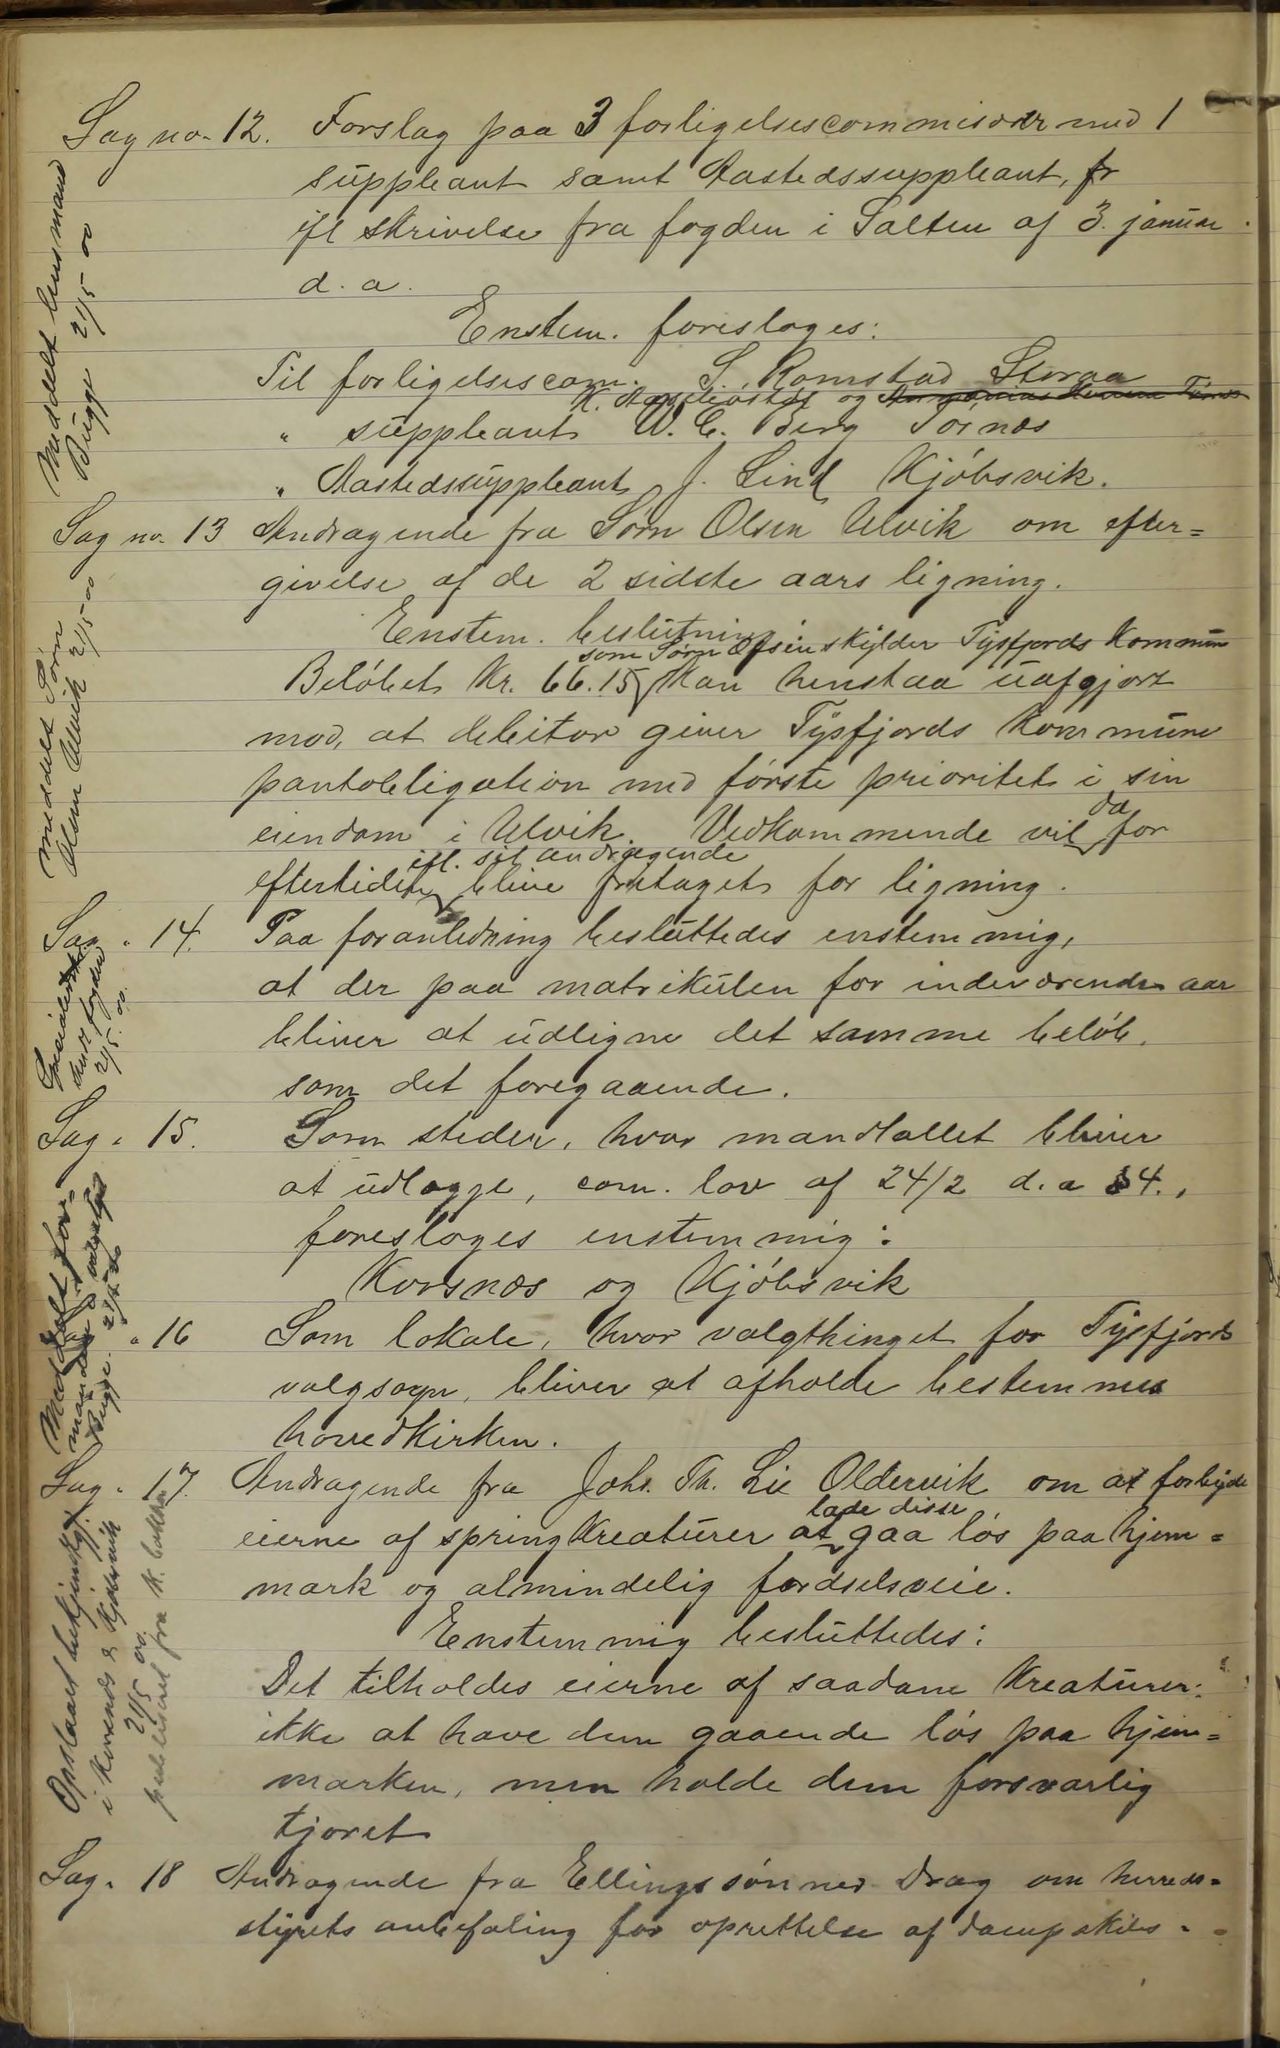 Sag no. 12. Forslag paa 3 forligelsescommisærer med 1
suppleant samt Aastedssuppleant, fr
ifl skrivelse fra fogden i Salten af 3. januar
d. a.
Meddelt lensmand
Bugge 21/5 00
Enstem. foresloges:
Til forligelsescom. S. Romstad Storaa
og
" suppleant W. C. Berg Törnæs
" Aastedssuppleant J. Lind Kjöbsvik.
Sag no. 13 Andragende fra Sörn Olsen Ulvik om efter=
givelse af de 2 sidste aars ligning.
meddelt Sörn
Olsen Ulvik 21/5 00
Enstem. beslutning:
som Sörn Olsen skylder Tysfjords Kommune
Belöbet Kr. 66.15 kan henstaa uafgjort
mod, at debitor giver Tysfjords Kommune
pantobligation med förste prioritet i sin
eiendom i Ulvik. Vedkommende vil da for
ifl. sit andragende
eftertiden blive fritaget for ligning.
Sag " 14. Paa foranledning besluttedes enstemmig,
at der paa matrikulen for indeværende aar
bliver at udligne det samme belöb,
som det foregaaende.
fogden
21/5. 00.
Sag " 15. Som steder, hvor mandtallet bliver
at udlægge, com. lov af 24/2 d. a § 4.,
foresloges enstemmig:
Korsnæs og Kjöbsvik
Meddelt for-
manden i valgstyret
Bugge. 21/5 00
" 16 Som lokale, hvor valgthinget for Tysfjords
valgsogn, bliver at afholde bestemmes
hovedkirken.
Sag " 17. Andragende fra Johs. Th. Lie Oldervik om at forbyde
lade disse
eierne af springkreaturer at gaa lös paa hjem=
mark og almindelig færdselsveie.
Opslaaet bekjendtgj.
i Korsnæs & Kjöbsvik
21/5 00.
publiseret fra K. bakken
Enstemmig besluttedes:
Det tilholdes eierne af saadane kreaturer:
ikke at have dem gaaende lös paa hjem=
marken, men holde dem forsvarlig
tjoret
Sag " 18 Andragende fra Ellingssönner Drag om herreds=
styrets anbefaling for oprettelse af dampskibs=